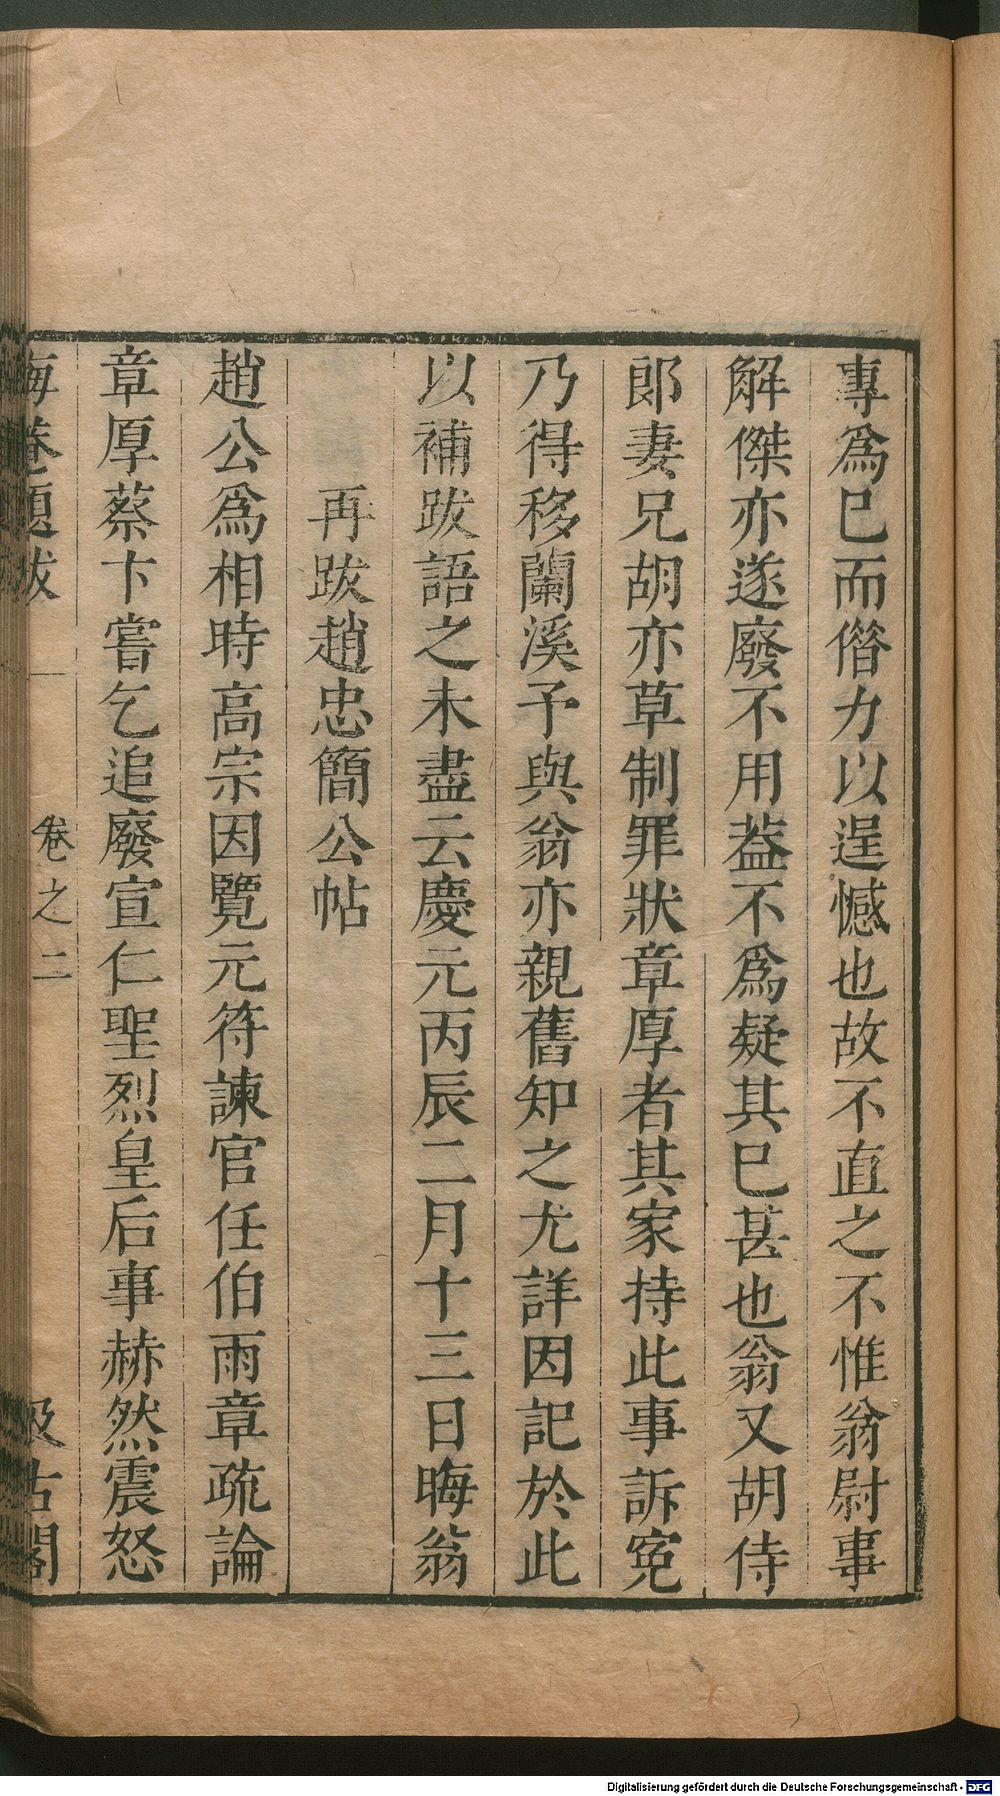 專爲巳而僭力以逞憾也故不直之不惟翁尉事
解傑亦遂廢不用葢不爲疑其巳甚也翁又胡侍
郞妻兄胡亦草制罪狀章厚者其家持此事訴寃
乃得移蘭溪予與翁亦親舊知之尤詳因記於此
以補跋語之未盡云慶元丙辰二月十三日晦翁
再跋趙忠簡公帖
趙公爲相時高宗因覽元符諫官任伯雨章疏論
章厚蔡卞嘗乞追廢宣仁聖烈皇后事赫然震怒
晦菴題跋 卷之二 汲古閣
Digitalisierung gefördert durch die Deutsche Forschungsgemeinschaft - DFG